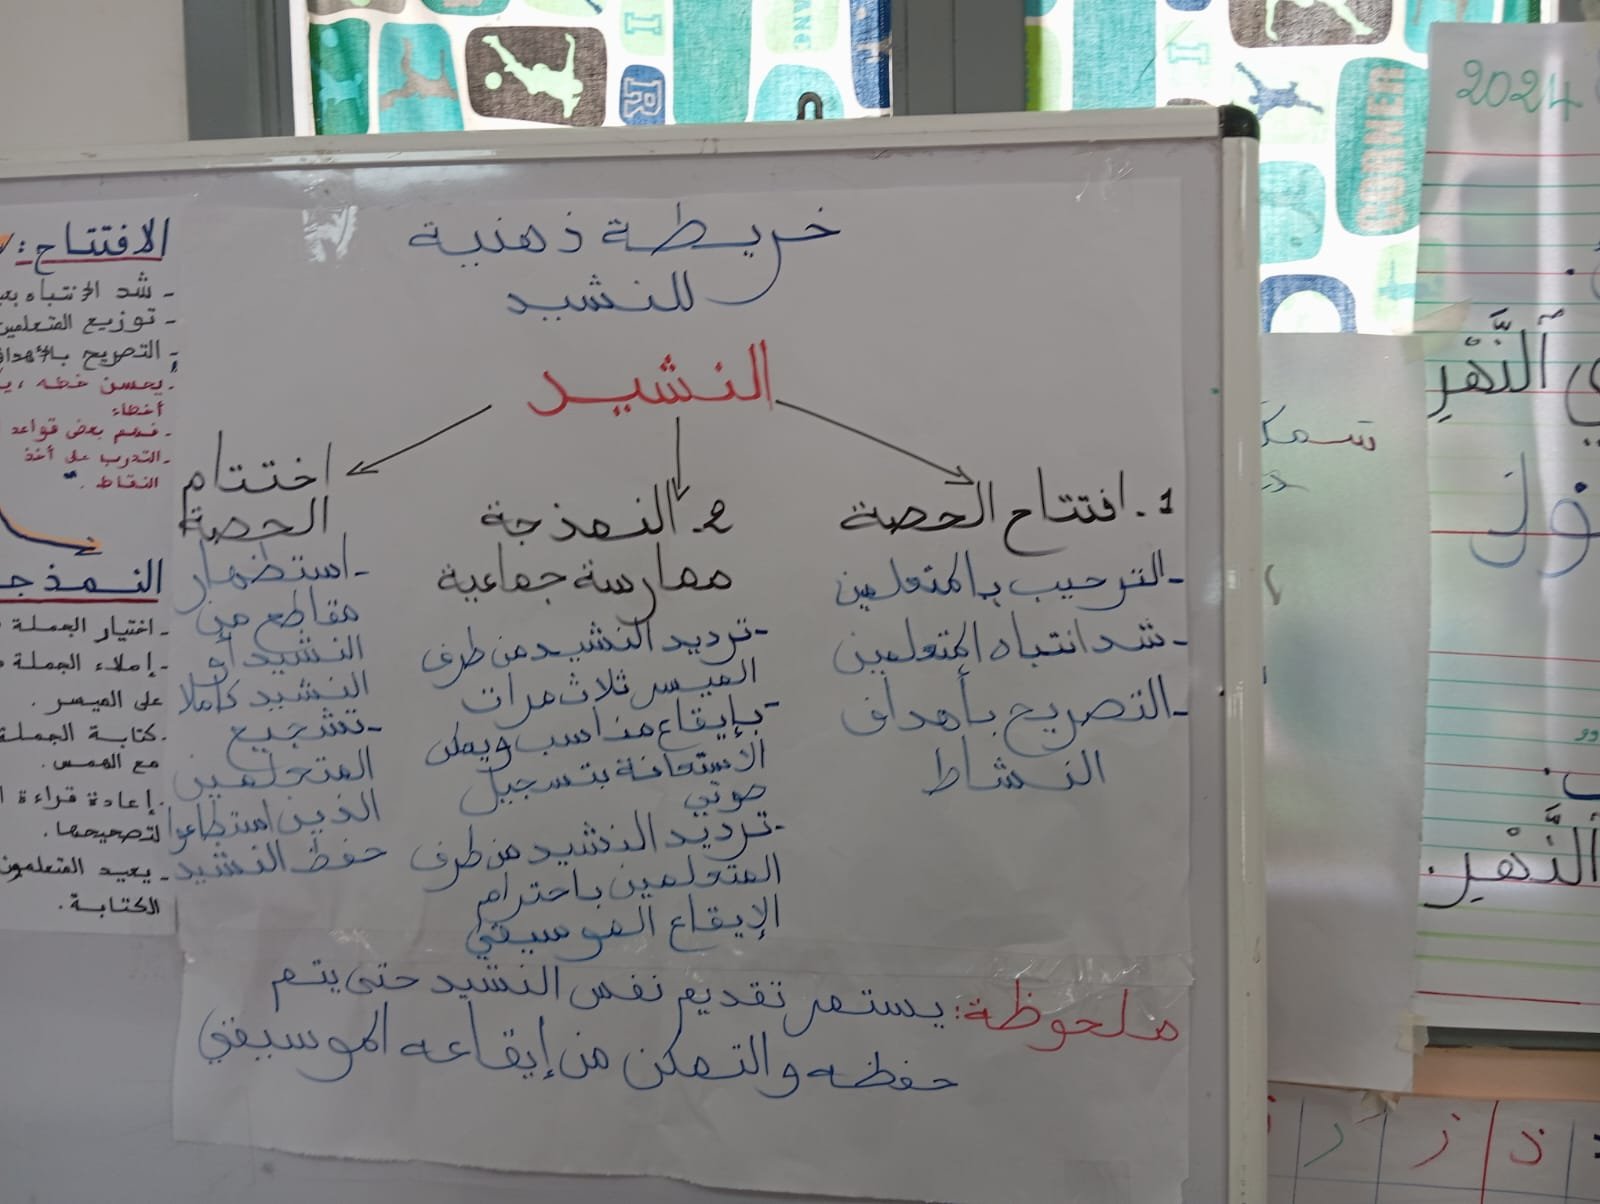 خريطة ذهنية
للنشيد
النشيد
1. افتتاح الحصة
- الترحيب بالمتعلمين
- شد انتباه المتعلمين
- التصريح بأهداف
النشاط
2. النمذجة
ممارسة جماعية
- ترديد النشيد من طرف
الميسر ثلاث مرات
- بإيقاع مناسب ويمكن
الاستعانة بتسجيل
صوتي
- ترديد النشيد من طرف
المتعلمين باحترام
الإيقاع الموسيقي
اختتام
الحصة
- استظهار
مقاطع من
النشيد أو
النشيد كاملا
- تشجيع
المتعلمين
الذين استطاعوا
حفظ النشيد
ملحوظة: يستمر تقديم نفس النشيد حتى يتم
حفظه والتمكن من إيقاعه الموسيقي
الافتتاح:
- شد الانتباه
- توزيع المتعلمين
- التصريح بالأهداف
- يحسن خطه ،
أخطاء
- فهم بعض قواعد
- التدرب على أخذ
النقاط .
النمذجة
- اختيار الجملة
- إملاء الجملة
على الميسر .
- كتابة الجملة
مع الهمس .
- إعادة قراءة
لتصحيحها .
- يعيد المتعلمون
الكتابة .
2024
ٱلنَّهْرِ
ٱلنَّهْرِ.
سمك
CORNER
R
ذ ز ر